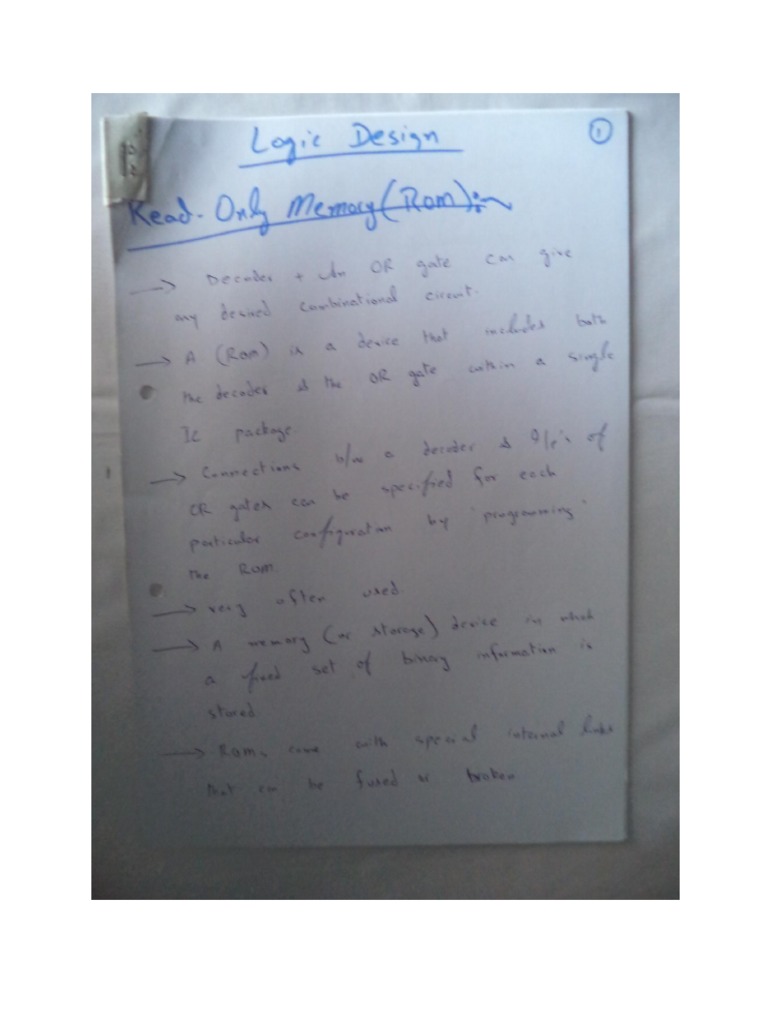 Logic Design
1
Read-Only Memory (Rom):-
→ Decoder + An OR gate can give
any desired combinational circuit.
→ A (Rom) is a device that includes both
the decoder & the OR gate within a single
IC package.
→ Connections b/w a decoder & I/p's of
OR gates can be specified for each
particular configuration by "programming"
the ROM.
→ very often used.
→ A memory (or storage) device in which
a fixed set of binary information is
stored
→ Roms come with special internal links
that can be fused or broken